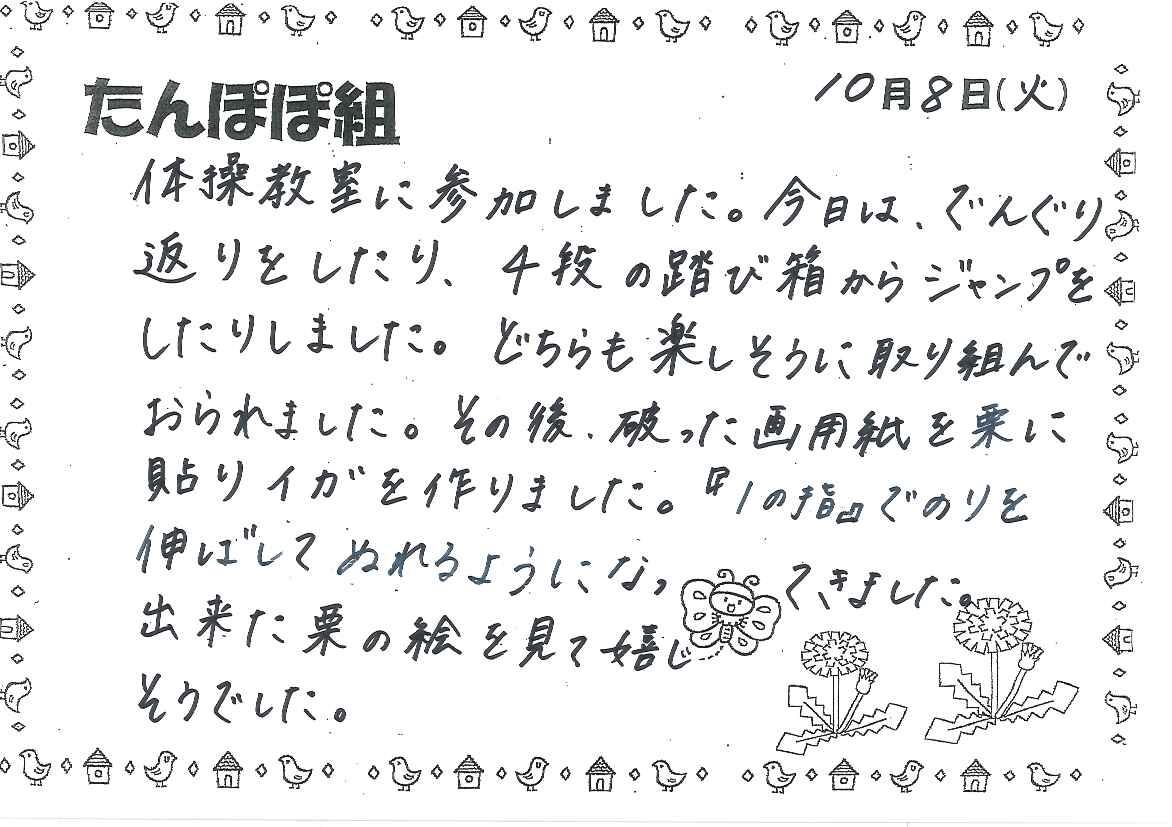 たんぽぽ組
10月8日(火)
体操教室に参加しました。今日は、でんぐり
返りをしたり、4段の踏び箱からジャンプを
したりしました。どちらも楽しそうに取り組んで
おられました。その後、破った画用紙を栗に
貼りイガを作りました。『1の指』でのりを
伸ばしてぬれるようになってきました。
出来た栗の絵を見て嬉し
そうでした。